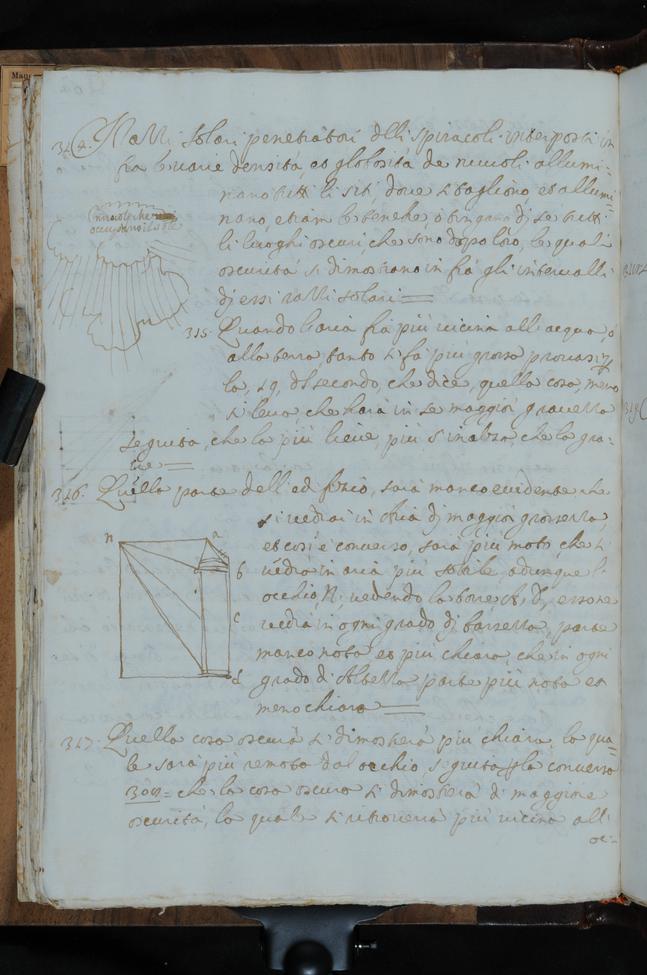 314. Razzi solari penetratori delli spiracoli interposti in
fra le varie densità, et globosità de nuvoli allumi-
nano tutti li siti, dove si tagliono et allumi-
nano, etiam le tenebre, o tingano di se tutti
li luoghi oscuri, che sono dopo loro, le quali
oscurità si dimostrano in fra gli intervalli
di essi razzi solari
nuvole che
occupano il sole
315. Quando l'aria fia più vicina all'acqua, o
alla terra, tanto si fa più grossa provasi p
la, 19, del secondo, che dice, quella cosa, meno
si leva che harà in se maggior gravezza
seguita, che la più lieve, più s'inalza, che la gra-
ve
316. Quella parte dell'edifizio, sarà manco evidente che
si vedrai in Aria di maggior grossezza,
et così è converso, sarà più nota, che si
vedrà in aria più sotile, adunque l'
occhio N, vedendo la torre A, D, essone
vedrà, in ogni grado di bassezza, parte
manco nota et più chiara, che in ogni
grado di Altezza parte più nota et
meno chiara
n
a
b
c
d
317. Quella cosa oscura si dimosterà più chiara, la qua-
le sarà più remota dal occhio, seguita p la converso
che la cosa oscura si dimosterà di maggiore
oscurità, la quale si ritroverà più vicina all'
oc-